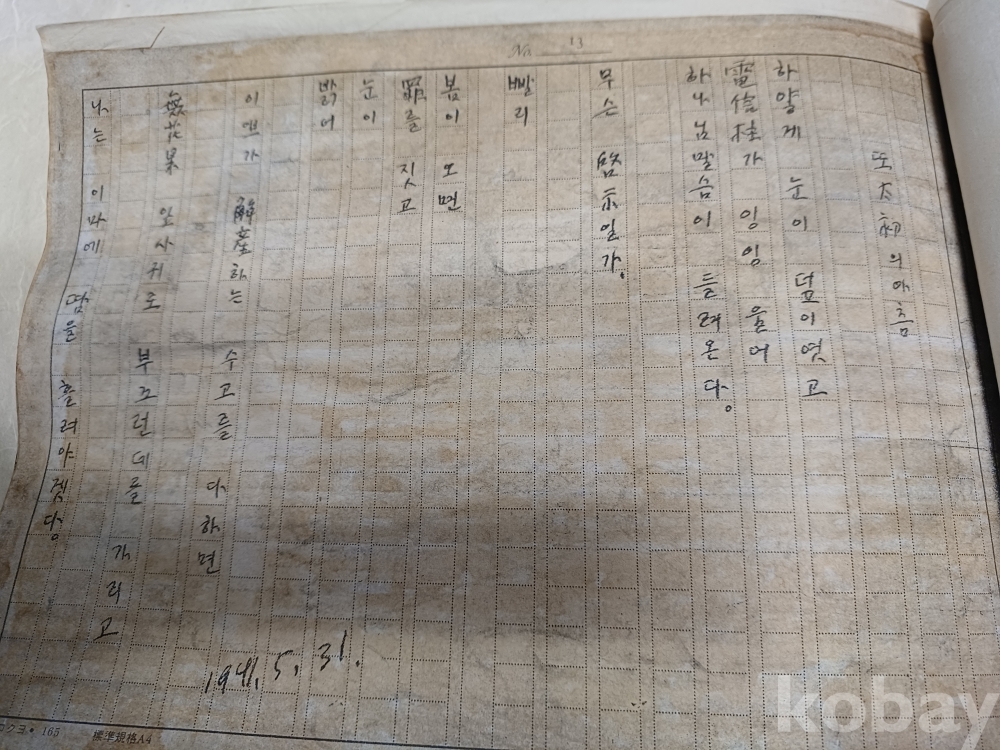 No 13
또 太初의아츰
하얗게 눈이 덮이엿고
電信柱가 잉잉 울어
하나님말슴이 들려온다.
무슨 啓示일가.
빨리
봄이 오면
罪를 짓고
눈이
밝어
이브가 解産하는 수고를 다하면
無花果 잎사귀로 부끄런데를 가리고
나는 이마에 땀을 흘려야겟다.
1941. 5. 31.
コクヨ・165 標準規格A4
kobay